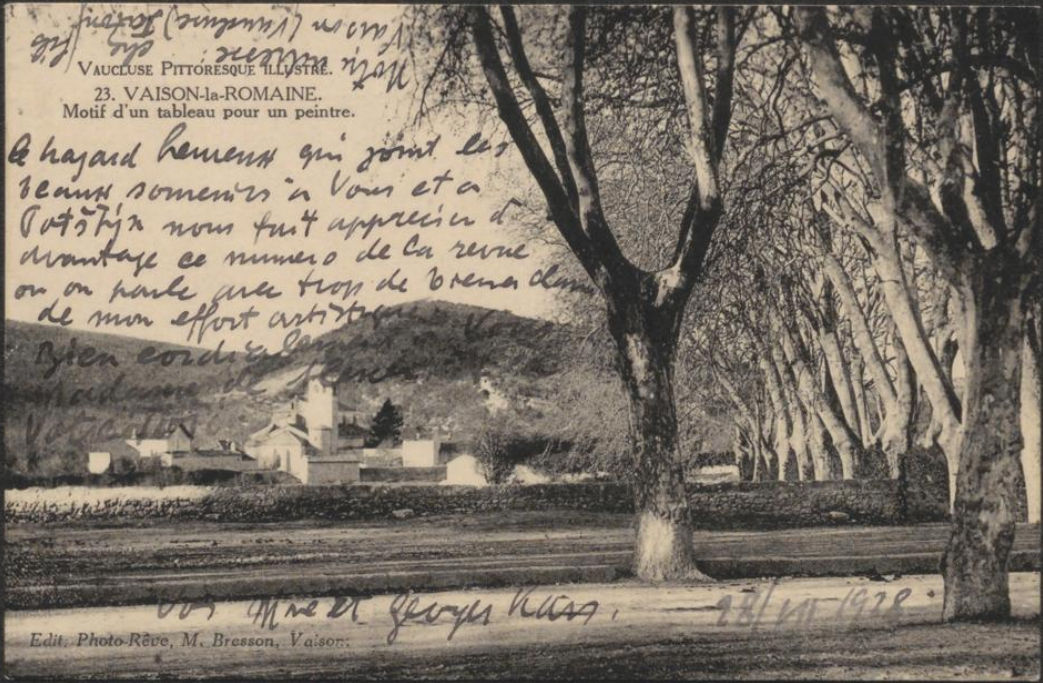 Vaison (Vaucluse)
Notre
VAUCLUSE PITTORESQUE ILLUSTRÉ.
23. VAISON-la-ROMAINE.
Motif d'un tableau pour un peintre.
hazard heureux qui joint les
beaux souvenirs à Vous et a
nous fait apprecier d
avantage ce numero de la revue
ou on parle avec trop de
de mon effort artistique. Vous
Bien cordialement
Madame de
vos Mme et Georges Kars.
28/VII 1928
Edit. Photo-Rêve, M. Bresson, Vaison.